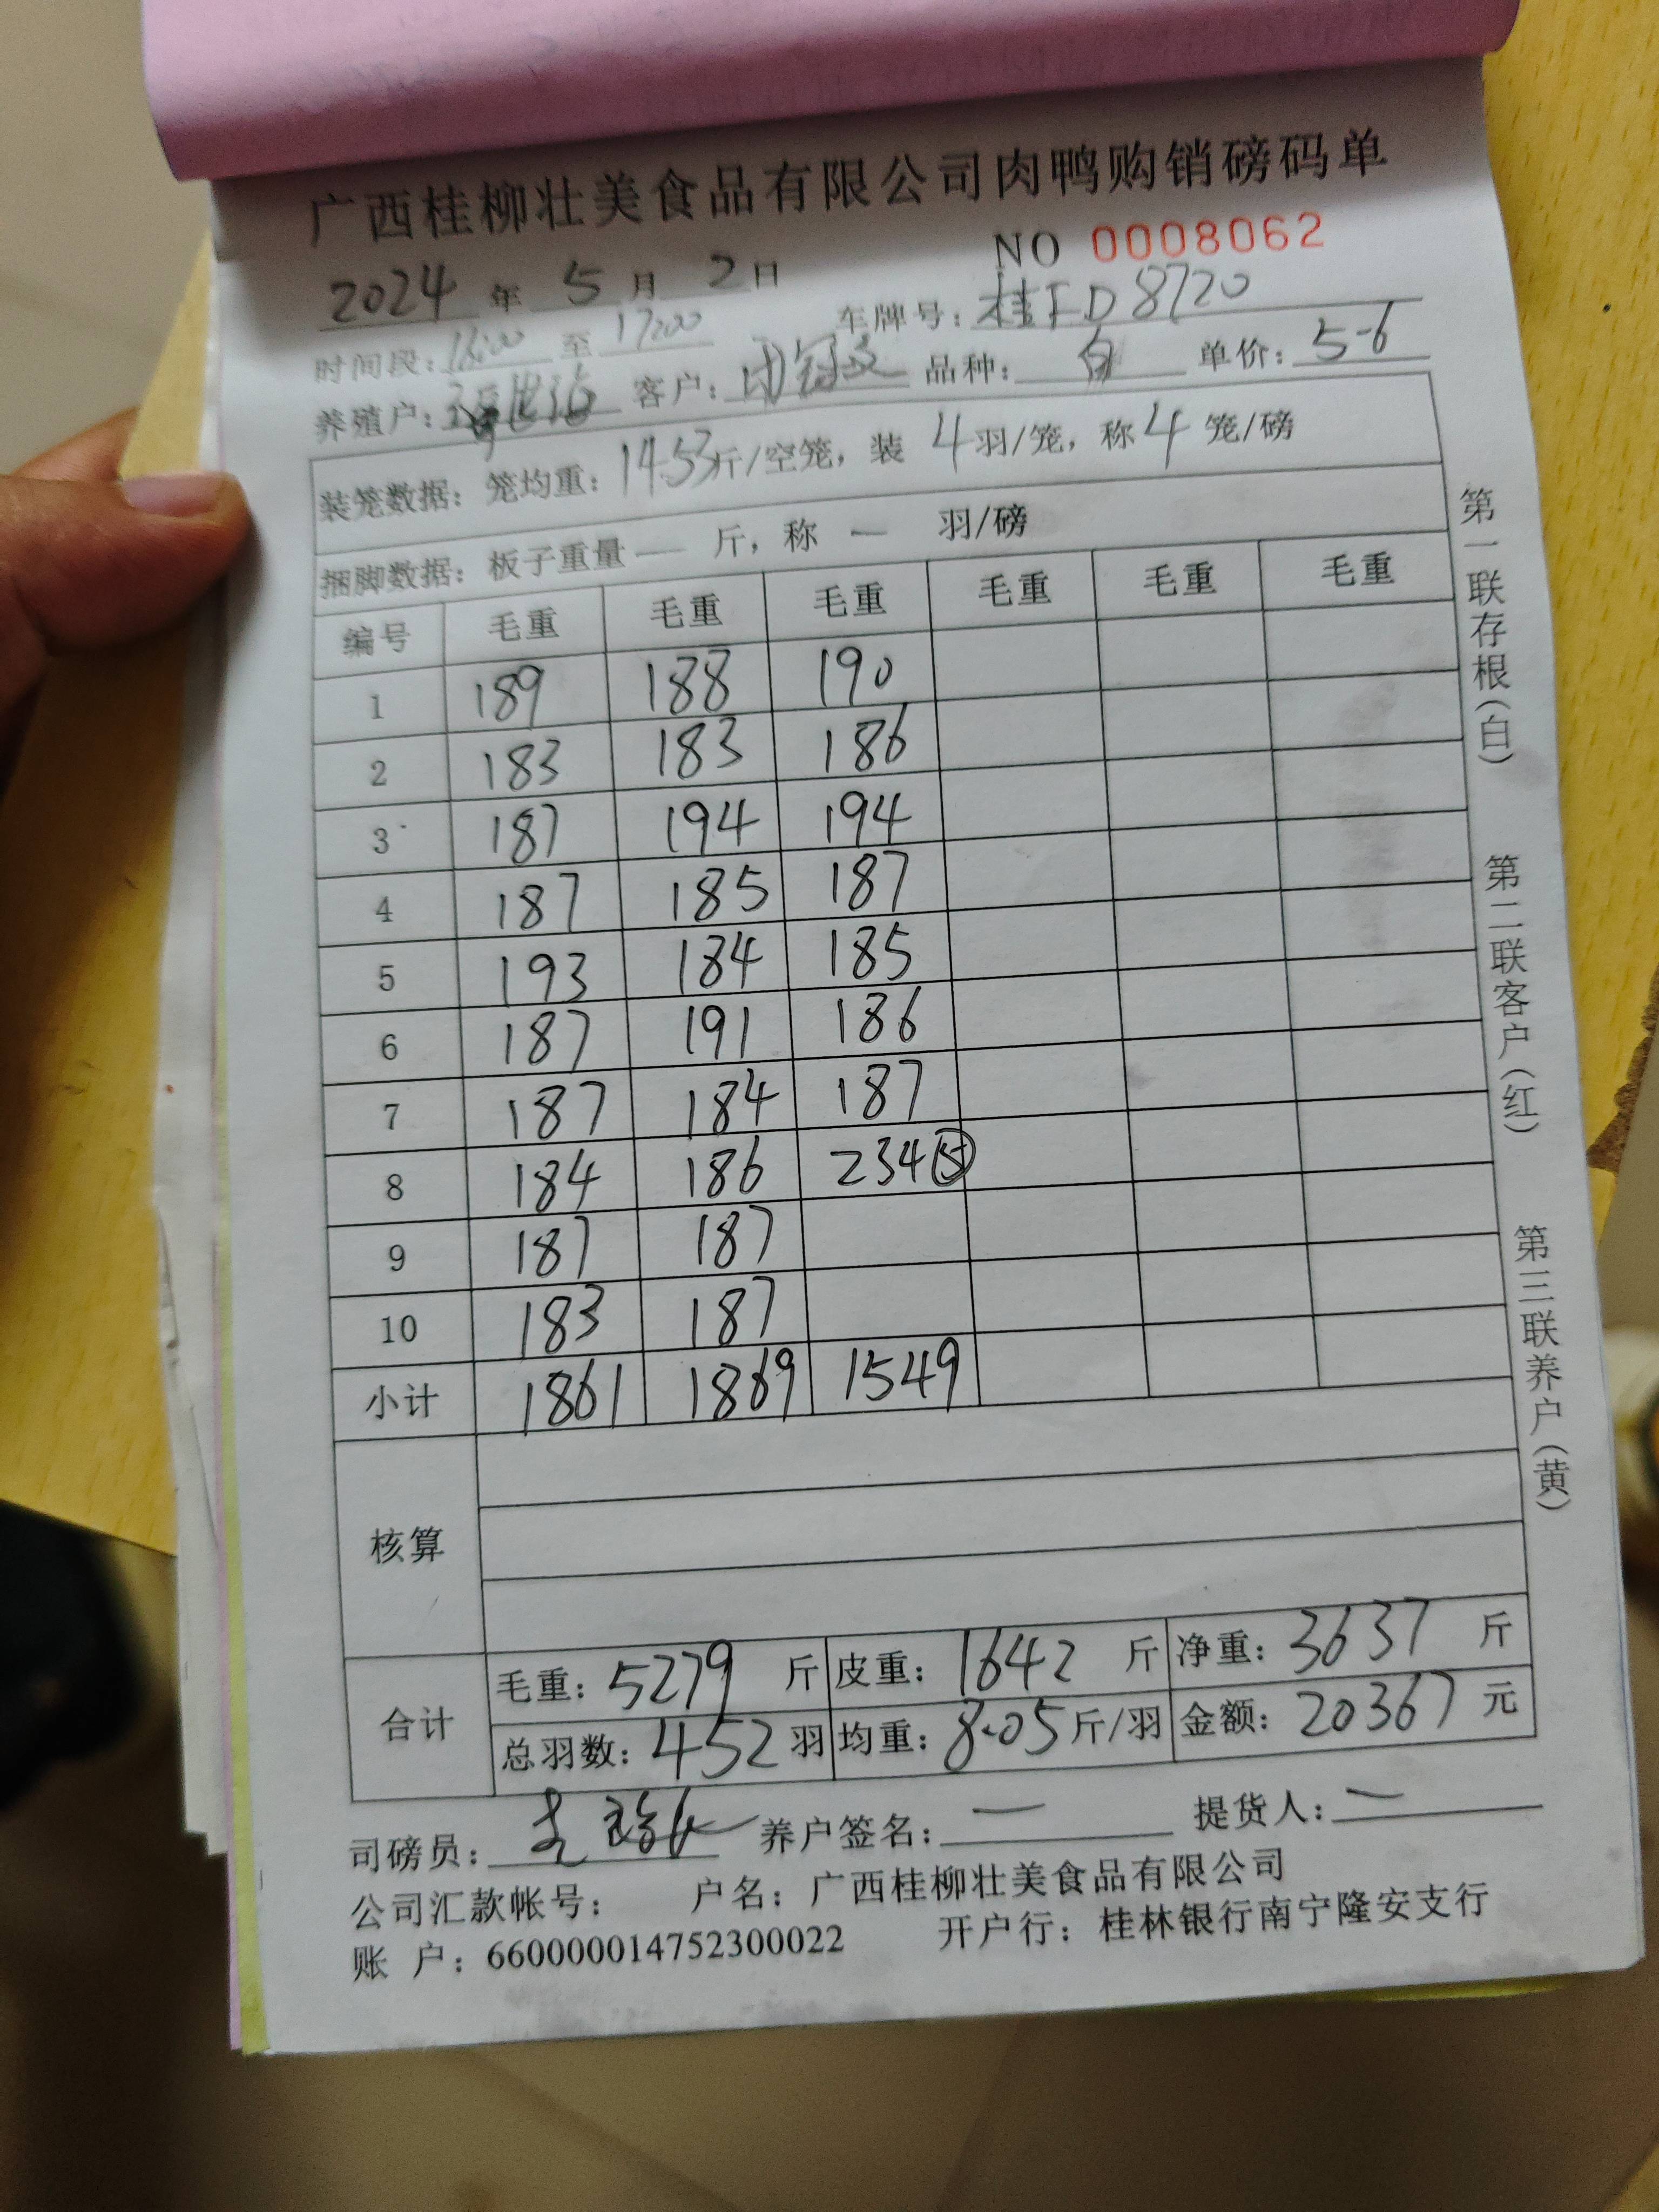 广西桂柳壮美食品有限公司肉鸭购销磅码单
NO 0008062
2024 年 5 月 2 日
时间段: 16:00 至 17:00 车牌号: 桂FD8720
养殖户: 客户: 品种: 白 单价: 5-6
装笼数据: 笼均重: 14.53斤/空笼, 装 4 羽/笼, 称 4 笼/磅
捆脚数据: 板子重量 — 斤, 称 — 羽/磅
编号 毛重 毛重 毛重 毛重 毛重 毛重
1 189 188 190
2 183 183 186
3 187 194 194
4 187 185 187
5 193 184 185
6 187 191 186
7 187 184 187
8 184 186 234 ⑤
9 187 187
10 183 187
小计 1861 1869 1549
核算
合计 毛重: 5279 斤 皮重: 1642 斤 净重: 3637 斤
总羽数: 452 羽 均重: 8.05 斤/羽 金额: 20367 元
司磅员: 养户签名: — 提货人: —
公司汇款帐号: 户名: 广西桂柳壮美食品有限公司
账 户: 660000014752300022 开户行: 桂林银行南宁隆安支行
第一联存根(白) 第二联客户(红) 第三联养户(黄)